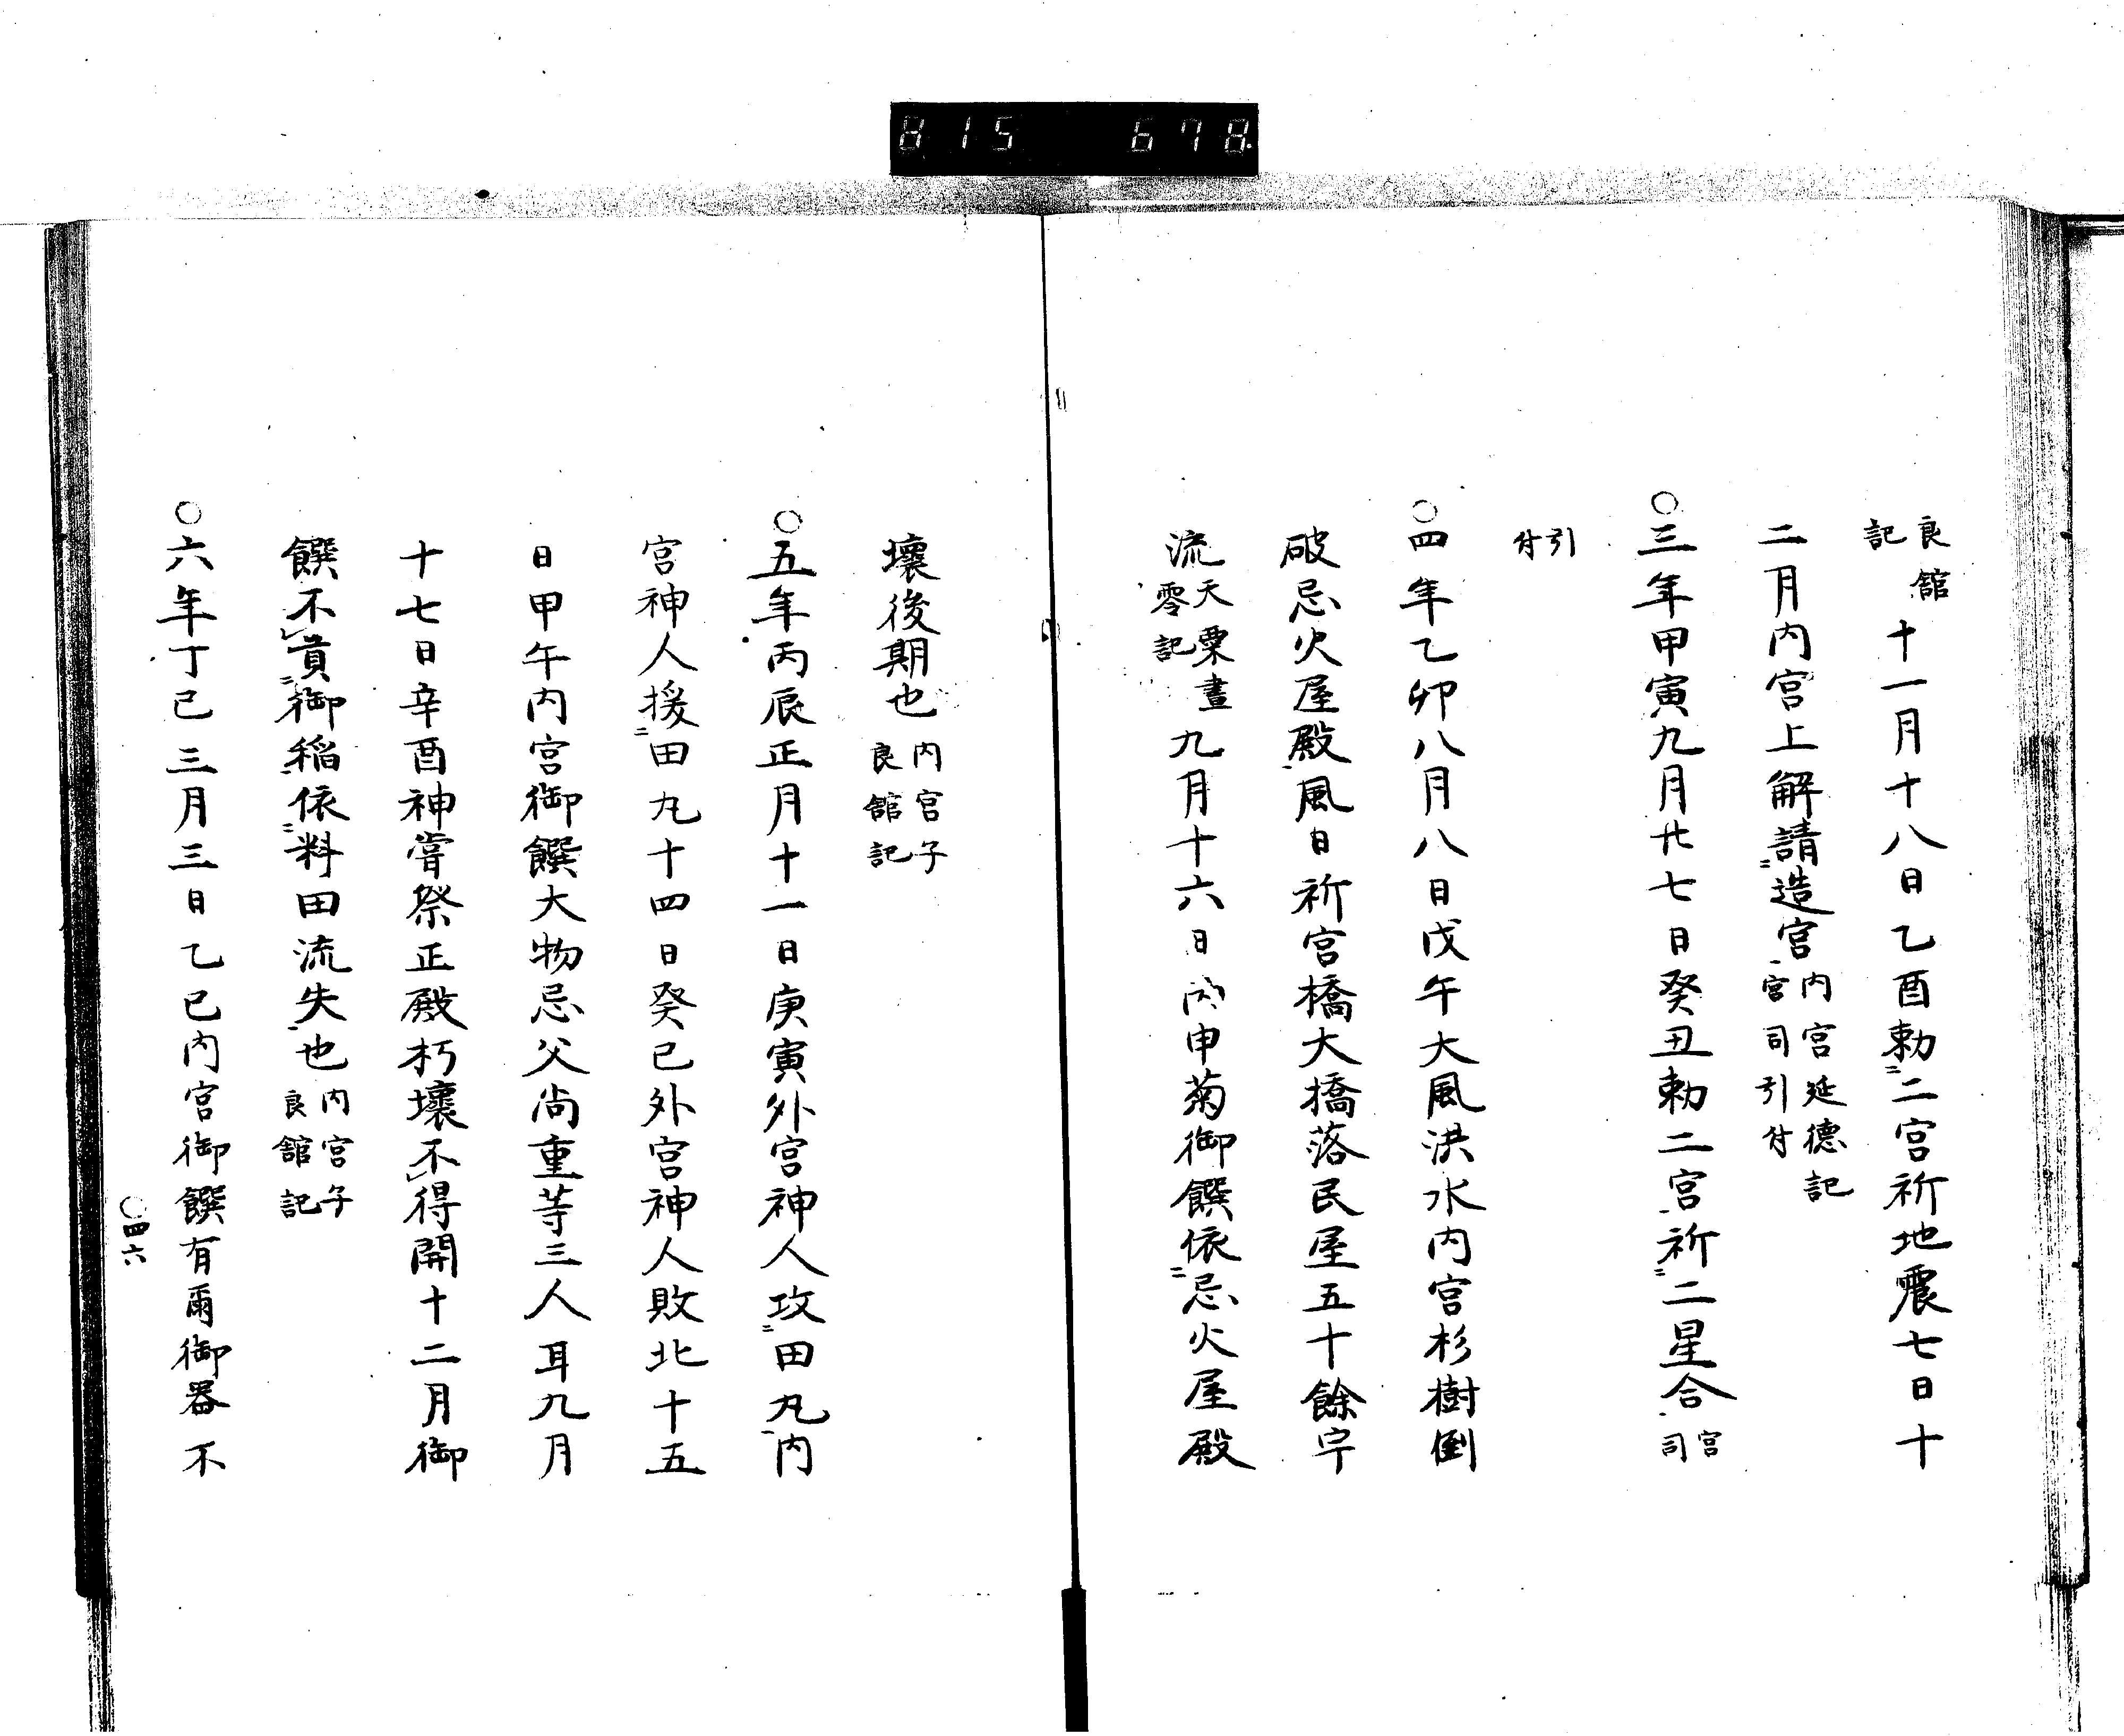 815 678
良舘記十一月十八日乙酉勅二宮祈地震七日十
二月内宮上解請造宮内宮延德記宮司引付
○三年甲寅九月廿七日癸丑勅二宮祈二星合宮司
引付
○四年乙卯八月八日戊午大風洪水内宮杉樹倒
破忌火屋殿風日祈宮橋大橋落民屋五十餘宇
流天粟畫零記九月十六日丙申菊御饌依忌火屋殿
壞後期也内宮子良舘記
○五年丙辰正月十一日庚寅外宮神人攻田丸内
宮神人援田丸十四日癸巳外宮神人敗北十五
日甲午内宮御饌大物忌父尚重等三人耳九月
十七日辛酉神嘗祭正殿朽壞不得開十二月御
饌不貢御稲依料田流失也内宮子良舘記
○六年丁巳三月三日乙巳内宮御饌有爾御器不
○四六